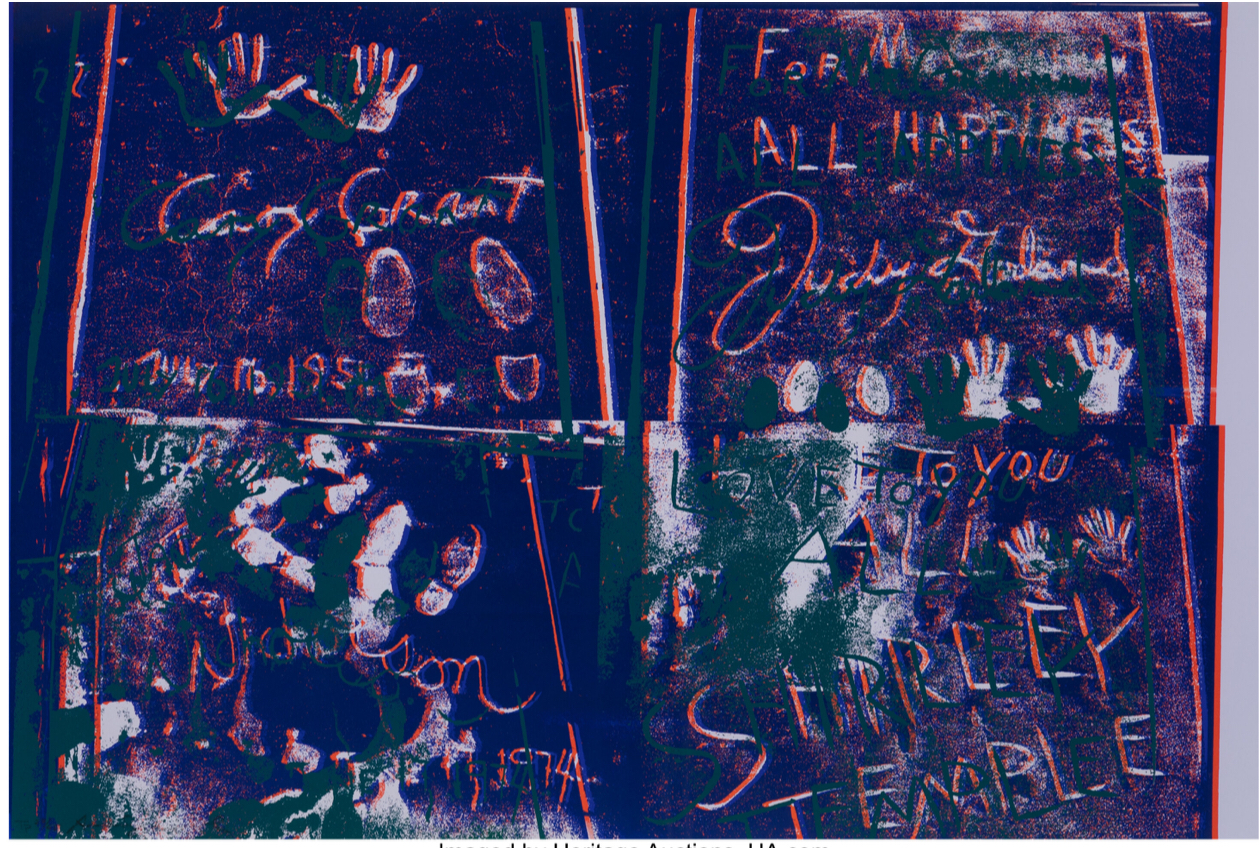 Cary Grant
July 16, 1951
FOR MR
ALL HAPPINESS
Judy Garland
Nicholson
1974
LOVE TO YOU
ALL
SHIRLEY
TEMPLE
Imaged by Heritage Auctions, HA.com